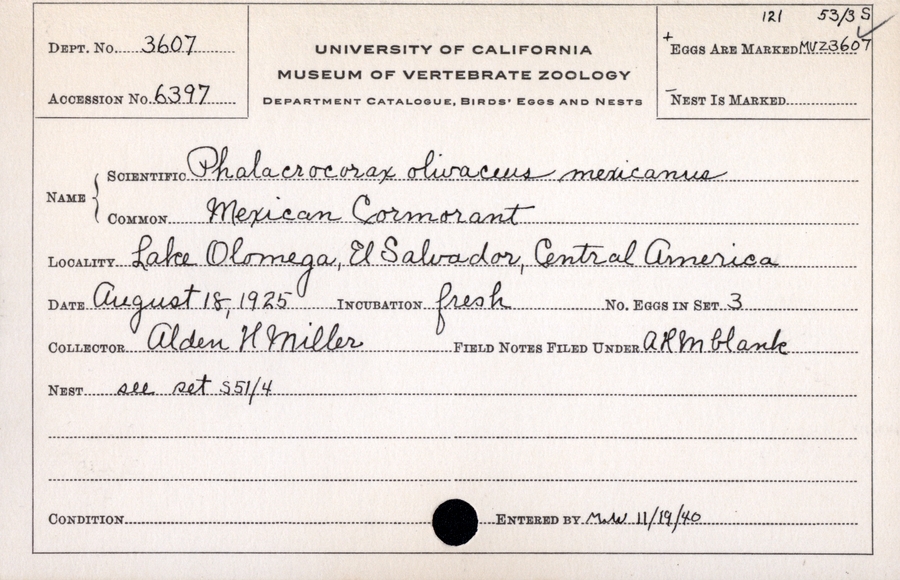 121 53/3 S
DEPT. No. 3607
UNIVERSITY OF CALIFORNIA
+EGGS ARE MARKED MVZ3607
MUSEUM OF VERTEBRATE ZOOLOGY
ACCESSION No. 6397
DEPARTMENT CATALOGUE, BIRDS' EGGS AND NESTS
NEST IS MARKED
NAME
SCIENTIFIC Phalacrocorax olivaceus mexicanus
COMMON Mexican Cormorant
LOCALITY Lake Olomega, El Salvador, Central America
DATE August 18, 1925 INCUBATION fresh No. EGGS IN SET 3
COLLECTOR Alden H Miller FIELD NOTES FILED UNDER AHM blank
NEST see set S51/4
CONDITION ENTERED BY MW 11/19/40